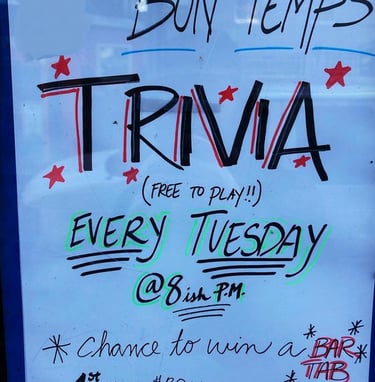 BON TEMPS
TRIVIA
(FREE TO PLAY!!)
EVERY TUESDAY
@8ish P.M.
*Chance to win a *BAR*
*TAB*
1st